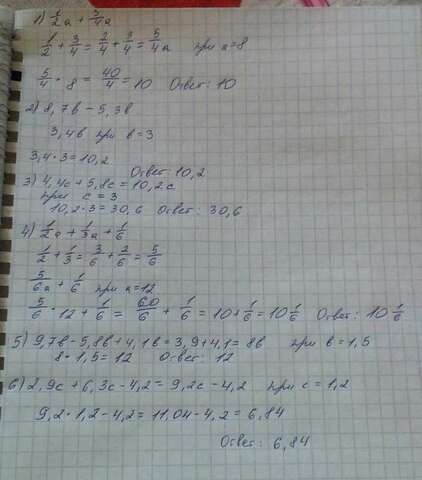 1) 1/2a + 3/4a
1/2 + 3/4 = 2/4 + 3/4 = 5/4a при a=8
5/4 · 8 = 40/4 = 10 Ответ: 10
2) 8,7в - 5,3в
3,4в при в=3
3,4·3=10,2
Ответ: 10,2
3) 4,4с+5,8с=10,2с
при с=3
10,2·3=30,6 Ответ: 30,6
4) 1/2a + 1/3a + 1/6
1/2 + 1/3 = 3/6 + 2/6 = 5/6
5/6a + 1/6 при a=12
5/6 · 12 + 1/6 = 60/6 + 1/6 = 10 + 1/6 = 10 1/6 Ответ: 10 1/6
5) 9,7в-5,8в+4,1в=3,9+4,1=8в при в=1,5
8·1,5=12 Ответ: 12
6) 2,9с+6,3с-4,2=9,2с-4,2 при с=1,2
9,2·1,2-4,2=11,04-4,2=6,84
Ответ: 6,84